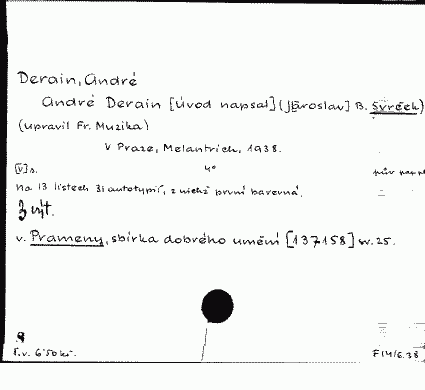 Derain, André
André Derain [Úvod napsal] (J[aroslav] B. Svrček)
(upravil Fr. Muzika)
V Praze, Melantrich, 1938.
[V] s. 4°
na 13 listech 31 autotypií, z nichž první barevná.
3 výt.
v. Prameny, sbírka dobrého umění [137158] sv. 25.
F.v. 6'50 kč.
F 14/6.38